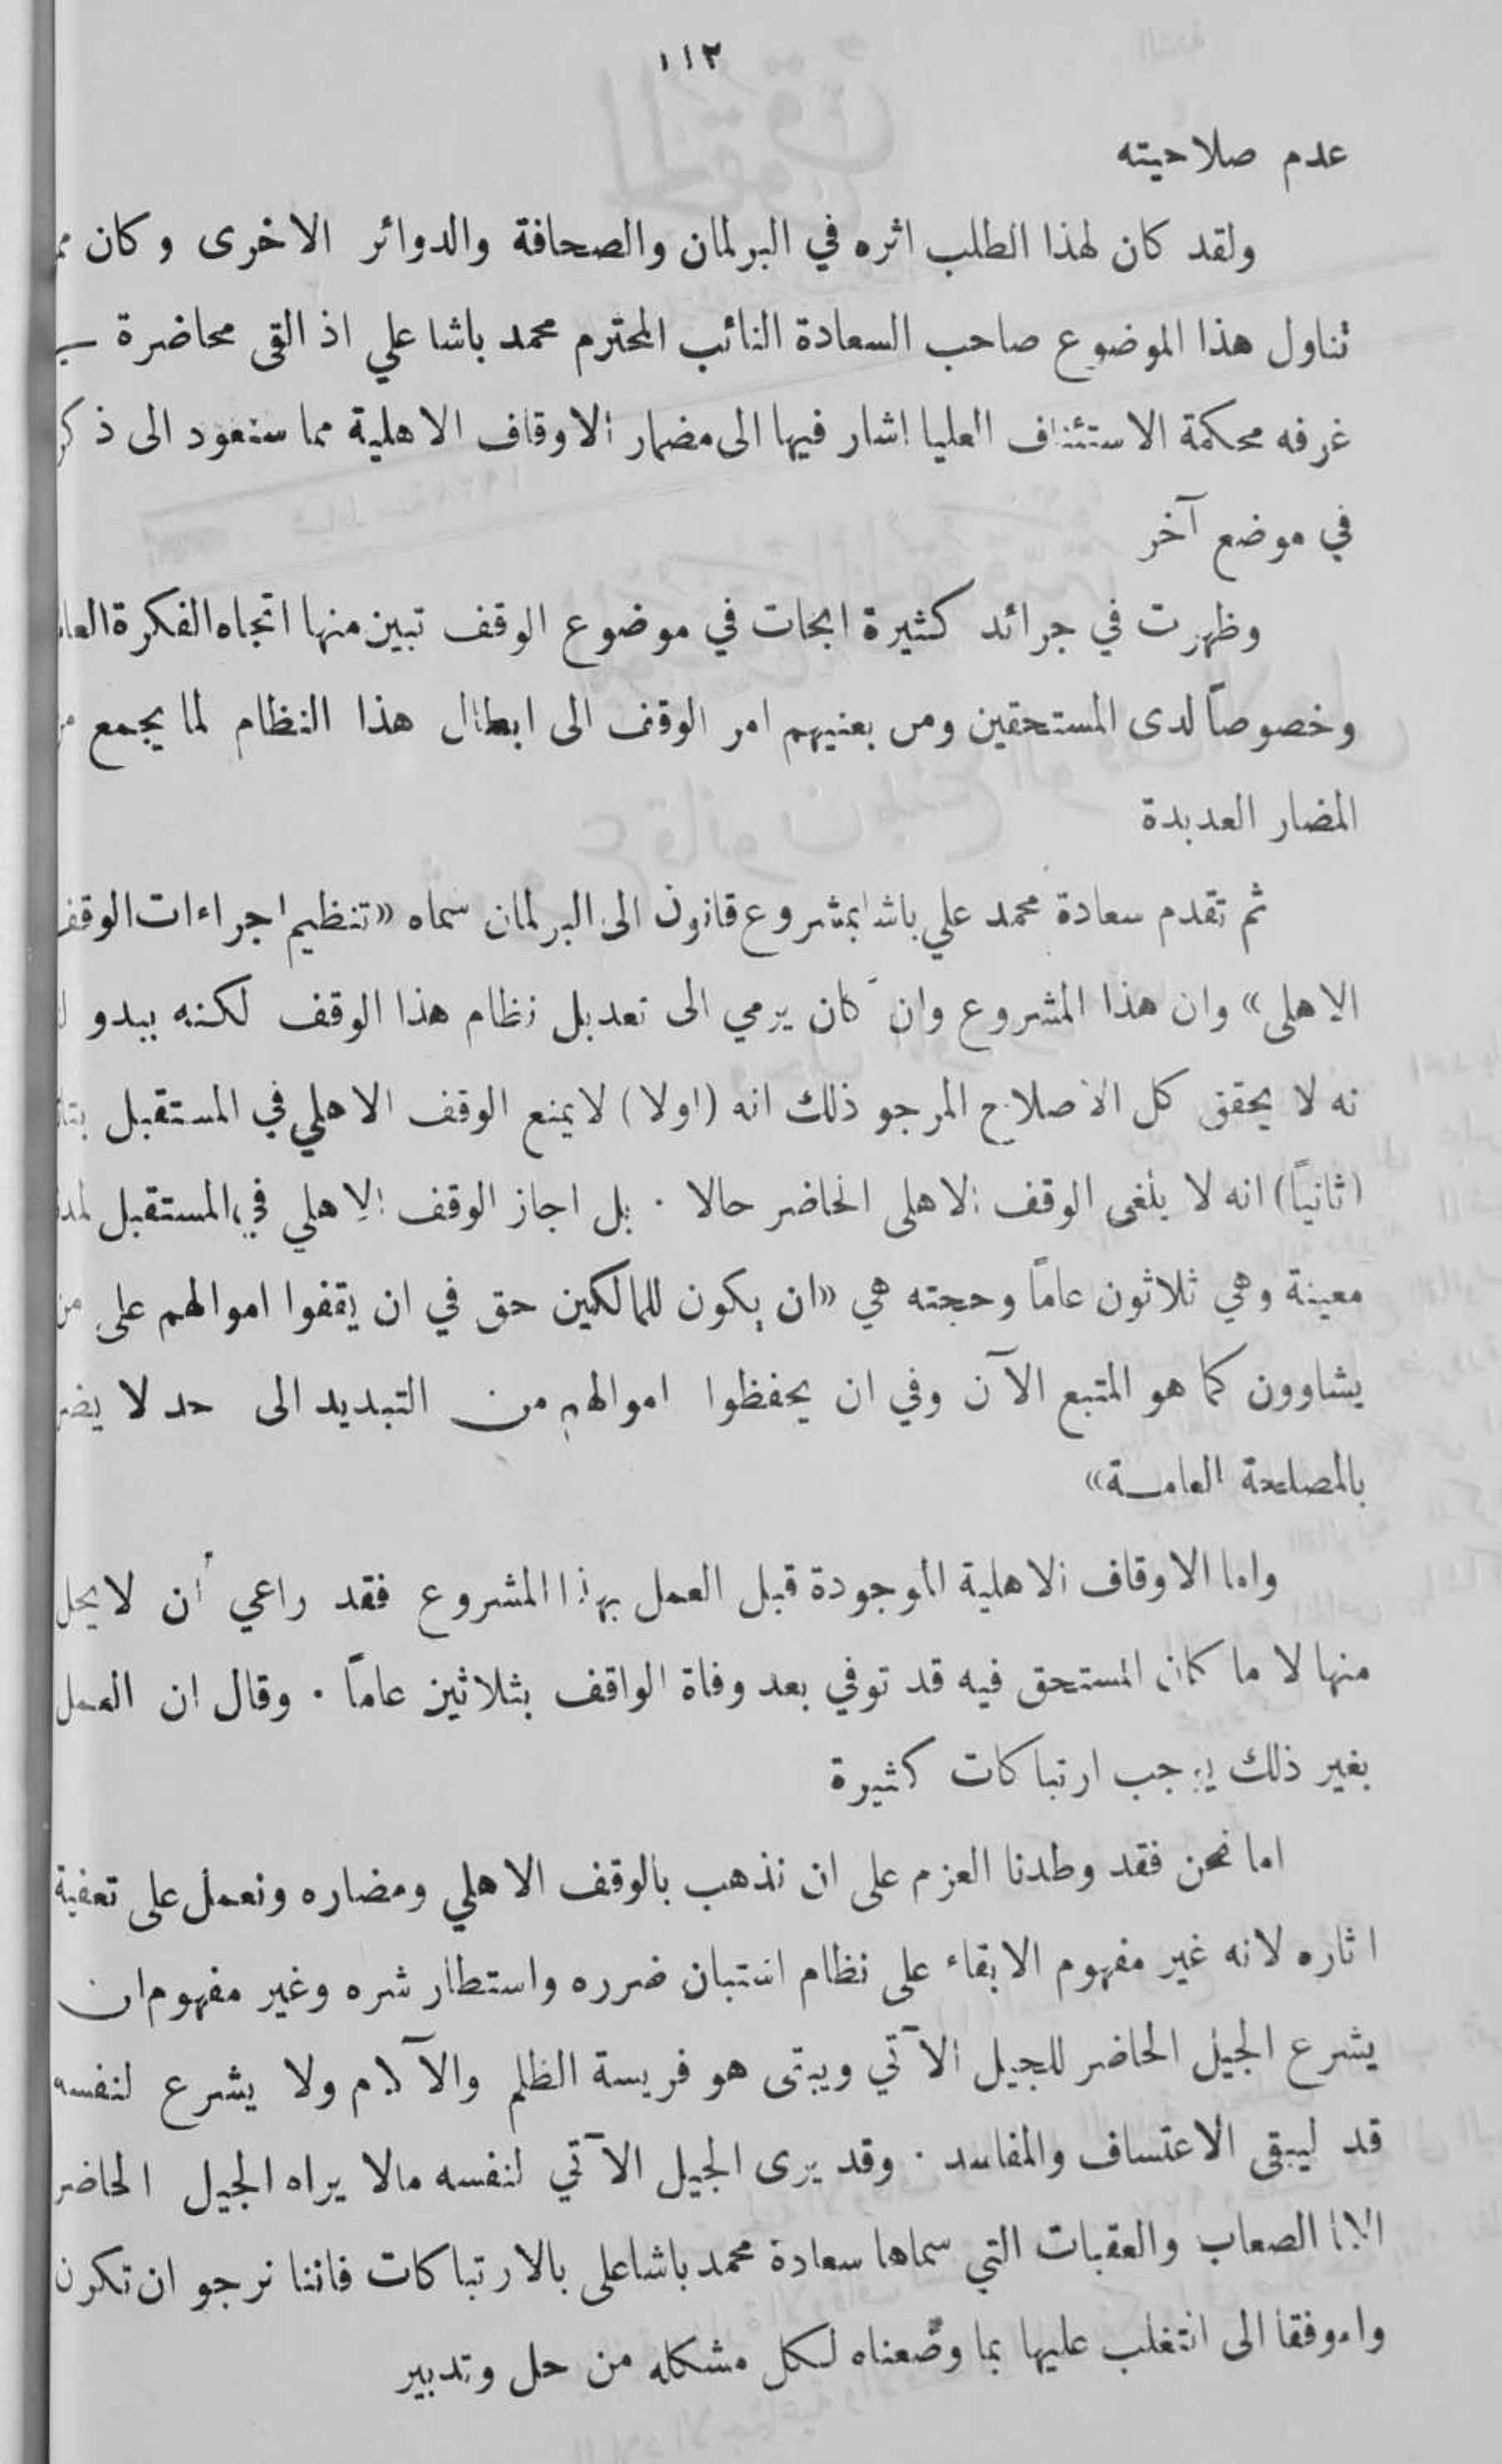 ١١٢
عدم صلاحيته
ولقد كان لهذا الطلب اثره في البرلمان والصحافة والدوائر الاخرى وكان
تناول هذا الموضوع صاحب السعادة النائب المحترم محمد باشا علي اذ القى محاضرة
غرفه محكمة الاستئناف العليا اشار فيها الى مضار الاوقاف الاهلية مما سنعود الى ذكر
في موضع آخر
وظهرت في جرائد كثيرة ابحات في موضوع الوقف تبين منها اتجاه الفكرة العا
وخصوصاً لدى المستحقين ومن بعنيهم امر الوقف الى ابطال هذا النظام لما يجمع
المضار العدبدة
ثم تقدم سعادة محمد علي باشا بمشروع قانون الى البرلمان سماه «تنظيم اجراءات الوقف
الاهلى» وان هذا المشروع وان كان يرمي الى تعدبل نظام هذا الوقف لكنه ببدو
نه لا يحقق كل الاصلاح المرجو ذلك انه (اولا) لا يمنع الوقف الاهلي في المستقبل
(ثانياً) انه لا يلغى الوقف الاهلى الحاضر حالا . بل اجاز الوقف الاهلي في المستقبل لمد
معينة وهي ثلاثون عاماً وحجته هي «ان يكون للمالكين حق في ان يقفوا اموالهم على من
يشاوون كما هو المتبع الآن وفي ان يحفظوا اموالهم من التبديد الى حد لا يضر
بالمصلحة العامة»
واما الاوقاف الاهلية الموجودة قبل العمل بهذا المشروع فقد راعي أن لا يحل
منها لا ما كان المستحق فيه قد توفي بعد وفاة الواقف بثلاثين عاماً . وقال ان العمل
بغير ذلك يوجب ارتباكات كثيرة
اما نحن فقد وطدنا العزم على ان نذهب بالوقف الاهلي ومضاره ونعمل على تعفية
اثاره لانه غير مفهوم الابقاء على نظام استبان ضرره واستطار شره وغير مفهوم ان
يشرع الجيل الحاضر للجيل الآتي ويبقى هو فريسة الظلم والآلام ولا يشرع لنفسه
قد ليبقى الاعتساف والمفاسد . وقد يرى الجيل الآتي لنفسه مالا يراه الجيل الحاضر
الصعاب والعقبات التي سماها سعادة محمد باشا على بالارتباكات فاننا نرجو ان تكون
واموفقا الى انتغلب عليها بما وضعناه لكل مشكله من حل وتدبير